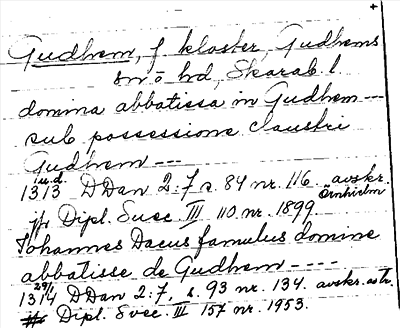 Gudhem, f kloster, Gudhems
sn o hd, Skarab l.
domina abbatissa in Gudhem ---
sub possessione claustri
Gudhem ---
u.d.
1313 DDan 2:7 s. 84 nr. 116. avskr.
Örnhielm
jfr Dipl. Svec. III 110 nr. 1899.
Johannes Dacus famulus domine
abbatisse de Gudhem ----
29/1
1314 DDan 2:7, s. 93 nr. 134. avskr. astr.
Dipl. Svec. III 157 nr. 1953.